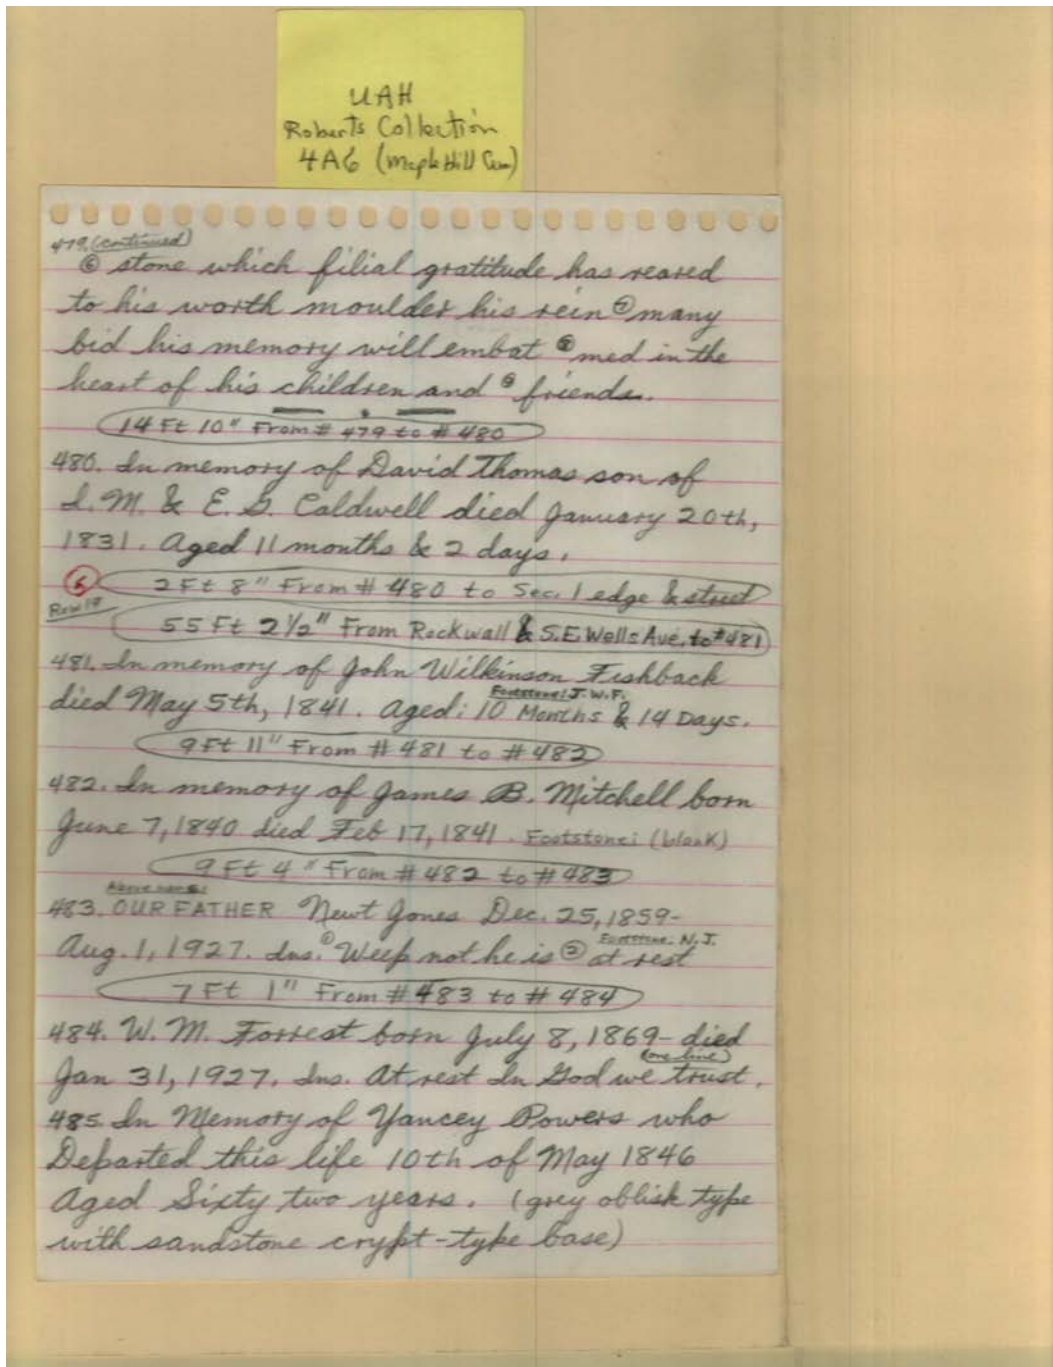 UAH
Roberts Collection
4A6 (Maple Hill Cem)
479. (continued)
⑥ stone which filial gratitude has reared
to his worth moulder his rein ⑦ many
bid his memory will embat ⑧ med in the
heart of his children and ⑨ friends.
14 Ft 10" From # 479 to # 480
480. In memory of David Thomas son of
I. M. & E. G. Caldwell died January 20th,
1831. Aged 11 months & 2 days.
⑥ 2 Ft 8" From # 480 to Sec. 1 edge & street
Row 19
55 Ft 2 1/2" From Rockwall & S.E. Wells Ave. to #481
481. In memory of John Wilkinson Fishback
Footstone: J.W.F.
died May 5th, 1841. Aged: 10 Months & 14 Days.
9 Ft 11" From # 481 to # 482
482. In memory of James B. Mitchell born
June 7, 1840 died Feb 17, 1841. Footstone: (blank)
9 Ft 4" From # 482 to # 483
Above name:
483. OUR FATHER Newt Jones Dec. 25, 1859-
Footstone: N.J.
Aug. 1, 1927. Ins. ① Weep not he is ② at rest
7 Ft 1" From # 483 to # 484
484. W. M. Forrest born July 8, 1869- died
(one line)
Jan 31, 1927. Ins. At rest In God we trust.
485. In Memory of Yancey Powers who
Departed this life 10th of May 1846
Aged Sixty two years. (grey oblisk type
with sandstone crypt-type base)